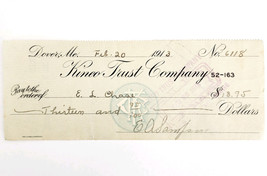 Dover, Me. Feb. 20 1913 No. 6118
Kineo Trust Company 52-163
Pay to the
order of E. L. Chase $13.75
Thirteen and Dollars